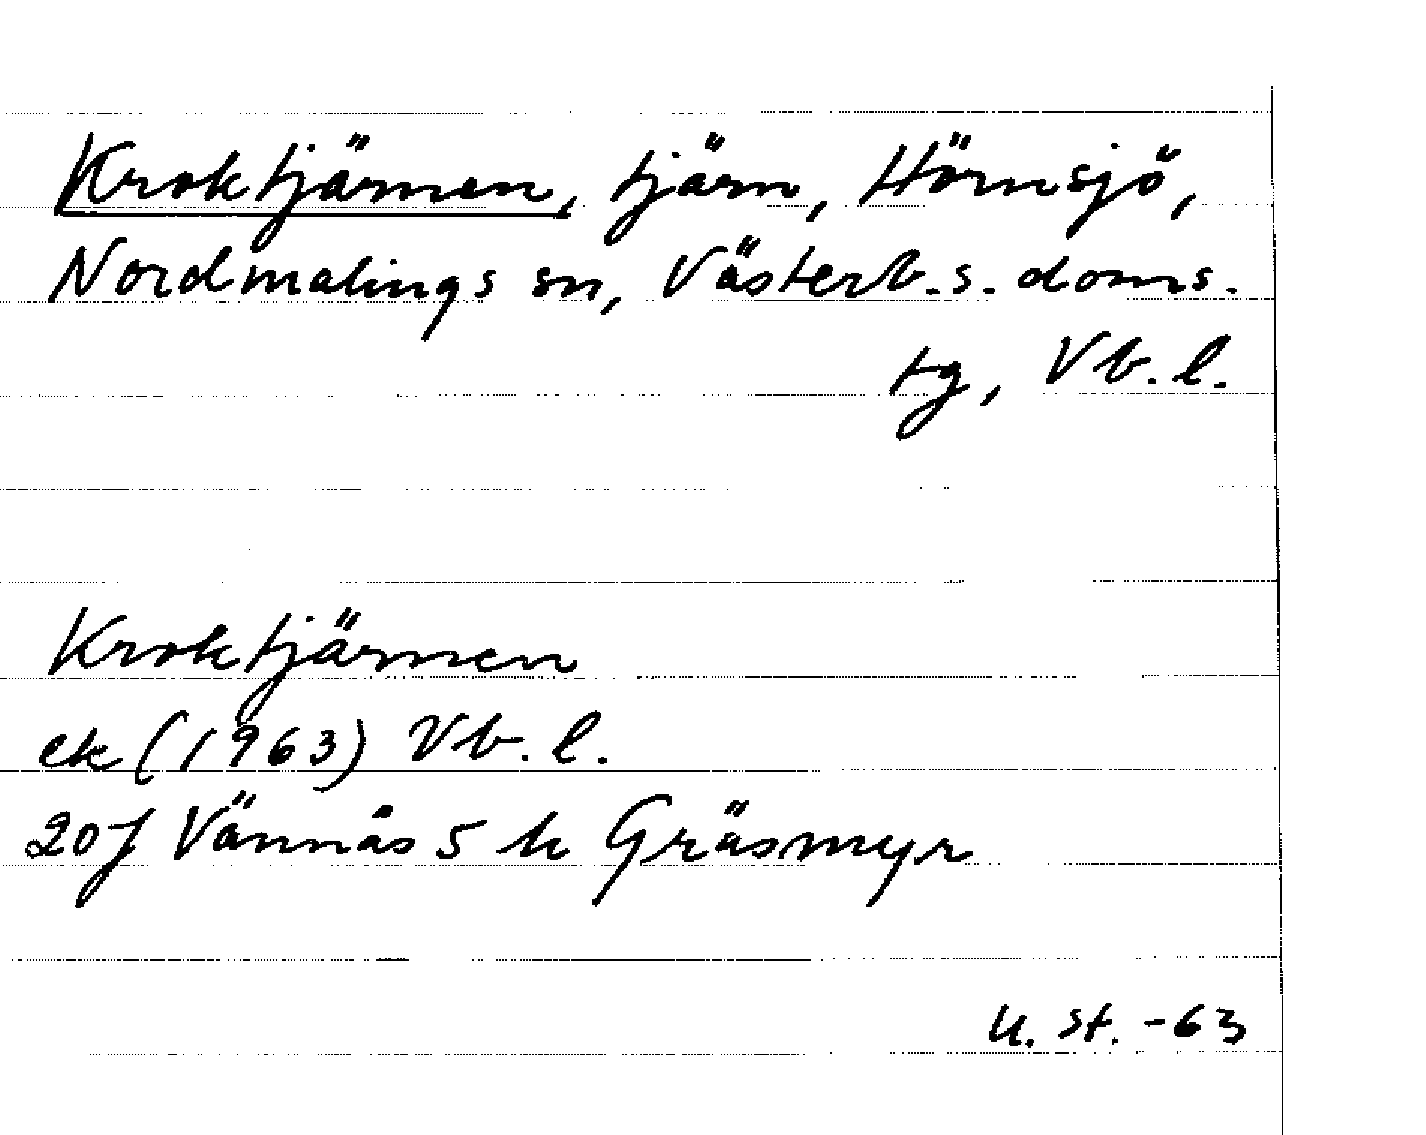 Kroktjärnen, tjärn, Hörnsjö,
Nordmalings sn, Västerb. s. doms.
tg, Vb. l.
Kroktjärnen
ek (1963) Vb. l.
20J Vännäs 5 h Gräsmyr
U. St. -63